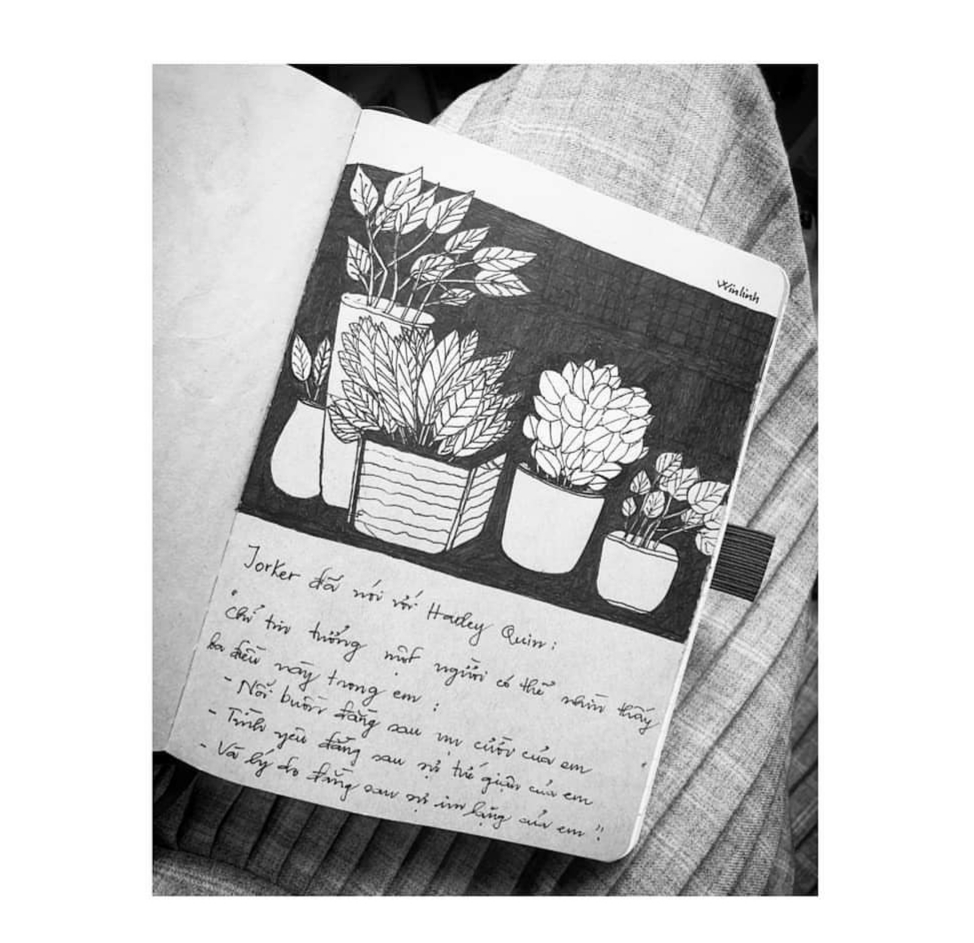 Winlinh
Jorker đã nói với Harley Quin:
"Chỉ tin tưởng một người có thể nhìn thấy
ba điều này trong em:
- Nỗi buồn đằng sau nụ cười của em
- Tình yêu đằng sau sự tức giận của em
- Và lý do đằng sau sự im lặng của em"